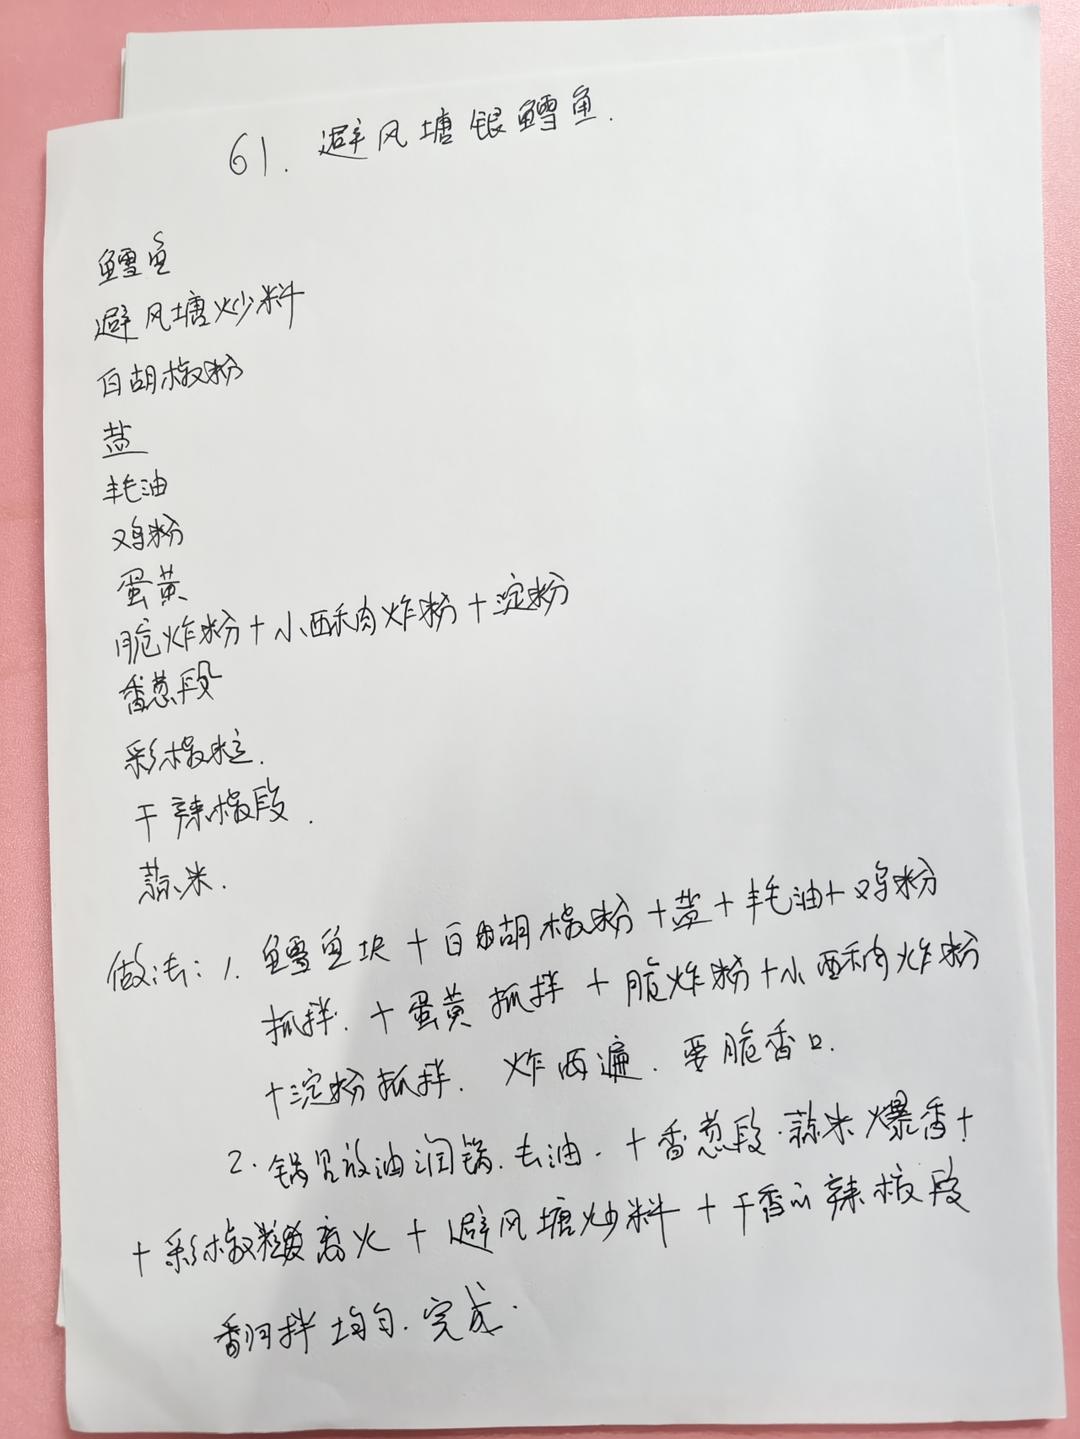 61. 避风塘银鳕鱼.
鳕鱼
避风塘炒料
白胡椒粉
盐
耗油
鸡粉
蛋黄
脆炸粉+小酥肉炸粉+淀粉
香葱段
彩椒粒.
干辣椒段.
蒜米.
做法: 1. 鳕鱼块+白胡椒粉+盐+耗油+鸡粉
抓拌. +蛋黄抓拌+脆炸粉+小酥肉炸粉
+淀粉抓拌. 炸两遍. 要脆香口.
2. 锅里放油润锅. 去油. +香葱段.蒜米爆香+
+彩椒粒离火+避风塘炒料+干香辣椒段
翻拌均匀. 完成.